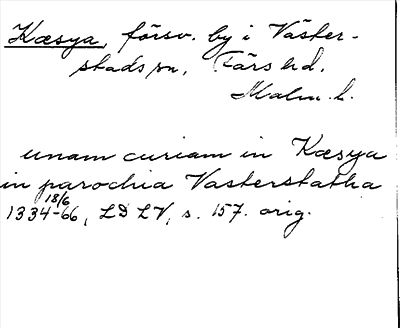 Kæsya, försv. by i Väster-
stads sn, Färs hd.
Malm. l.
unam curiam in Kæsya
in parochia Vasterstatha
1334-18/6 66, LD LV, s. 157. orig.